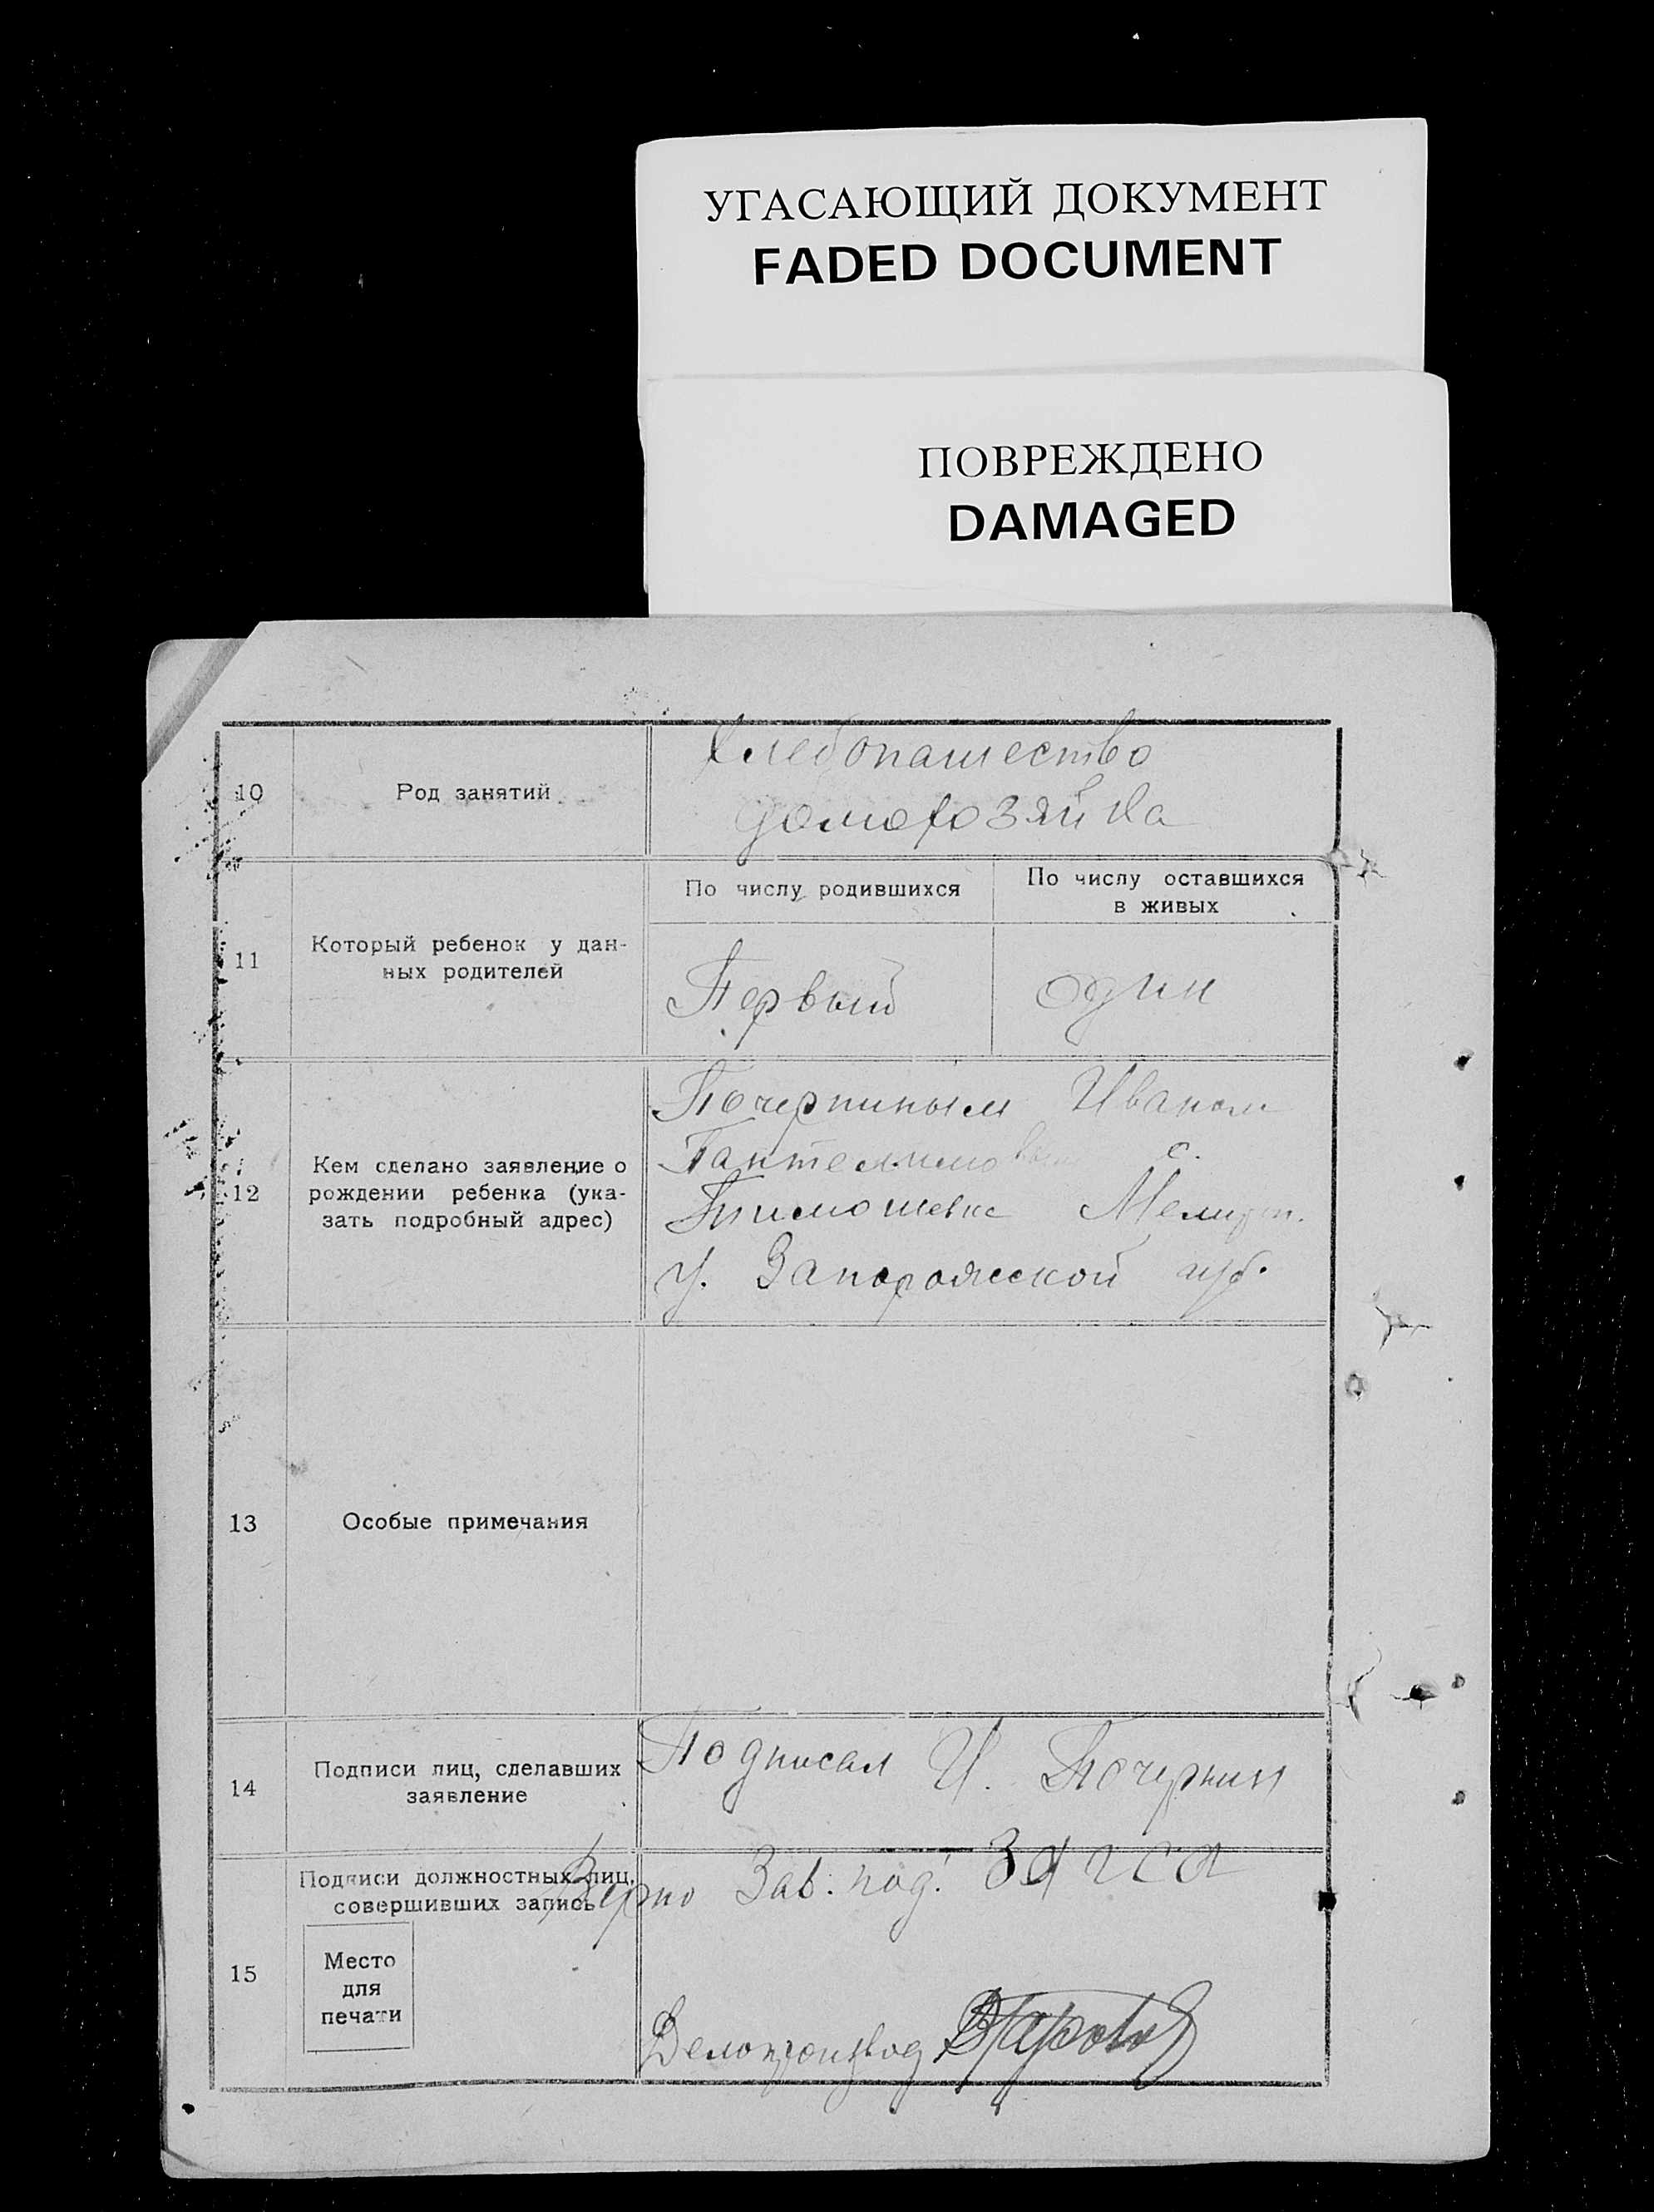 УГАСАЮЩИЙ ДОКУМЕНТ
FADED DOCUMENT
ПОВРЕЖДЕНО
DAMAGED
10
Род занятий
Хлебопашество
домохозяйка
11
Который ребенок у дан-
ных родителей
По числу родившихся
По числу оставшихся
в живых
Первый
один
12
Кем сделано заявление о
рождении ребенка (ука-
зать подробный адрес)
Почерниным Иваном
с.
Тимошевке Мелит.
у. Запорожской губ.
13
Особые примечания
14
Подписи лиц, сделавших
заявление
Подписал И. Почернин
15
Подписи должностных лиц,
совершивших запись
Верно Зав. под. ЗАГСА
Место
для
печати
Делопроизвод